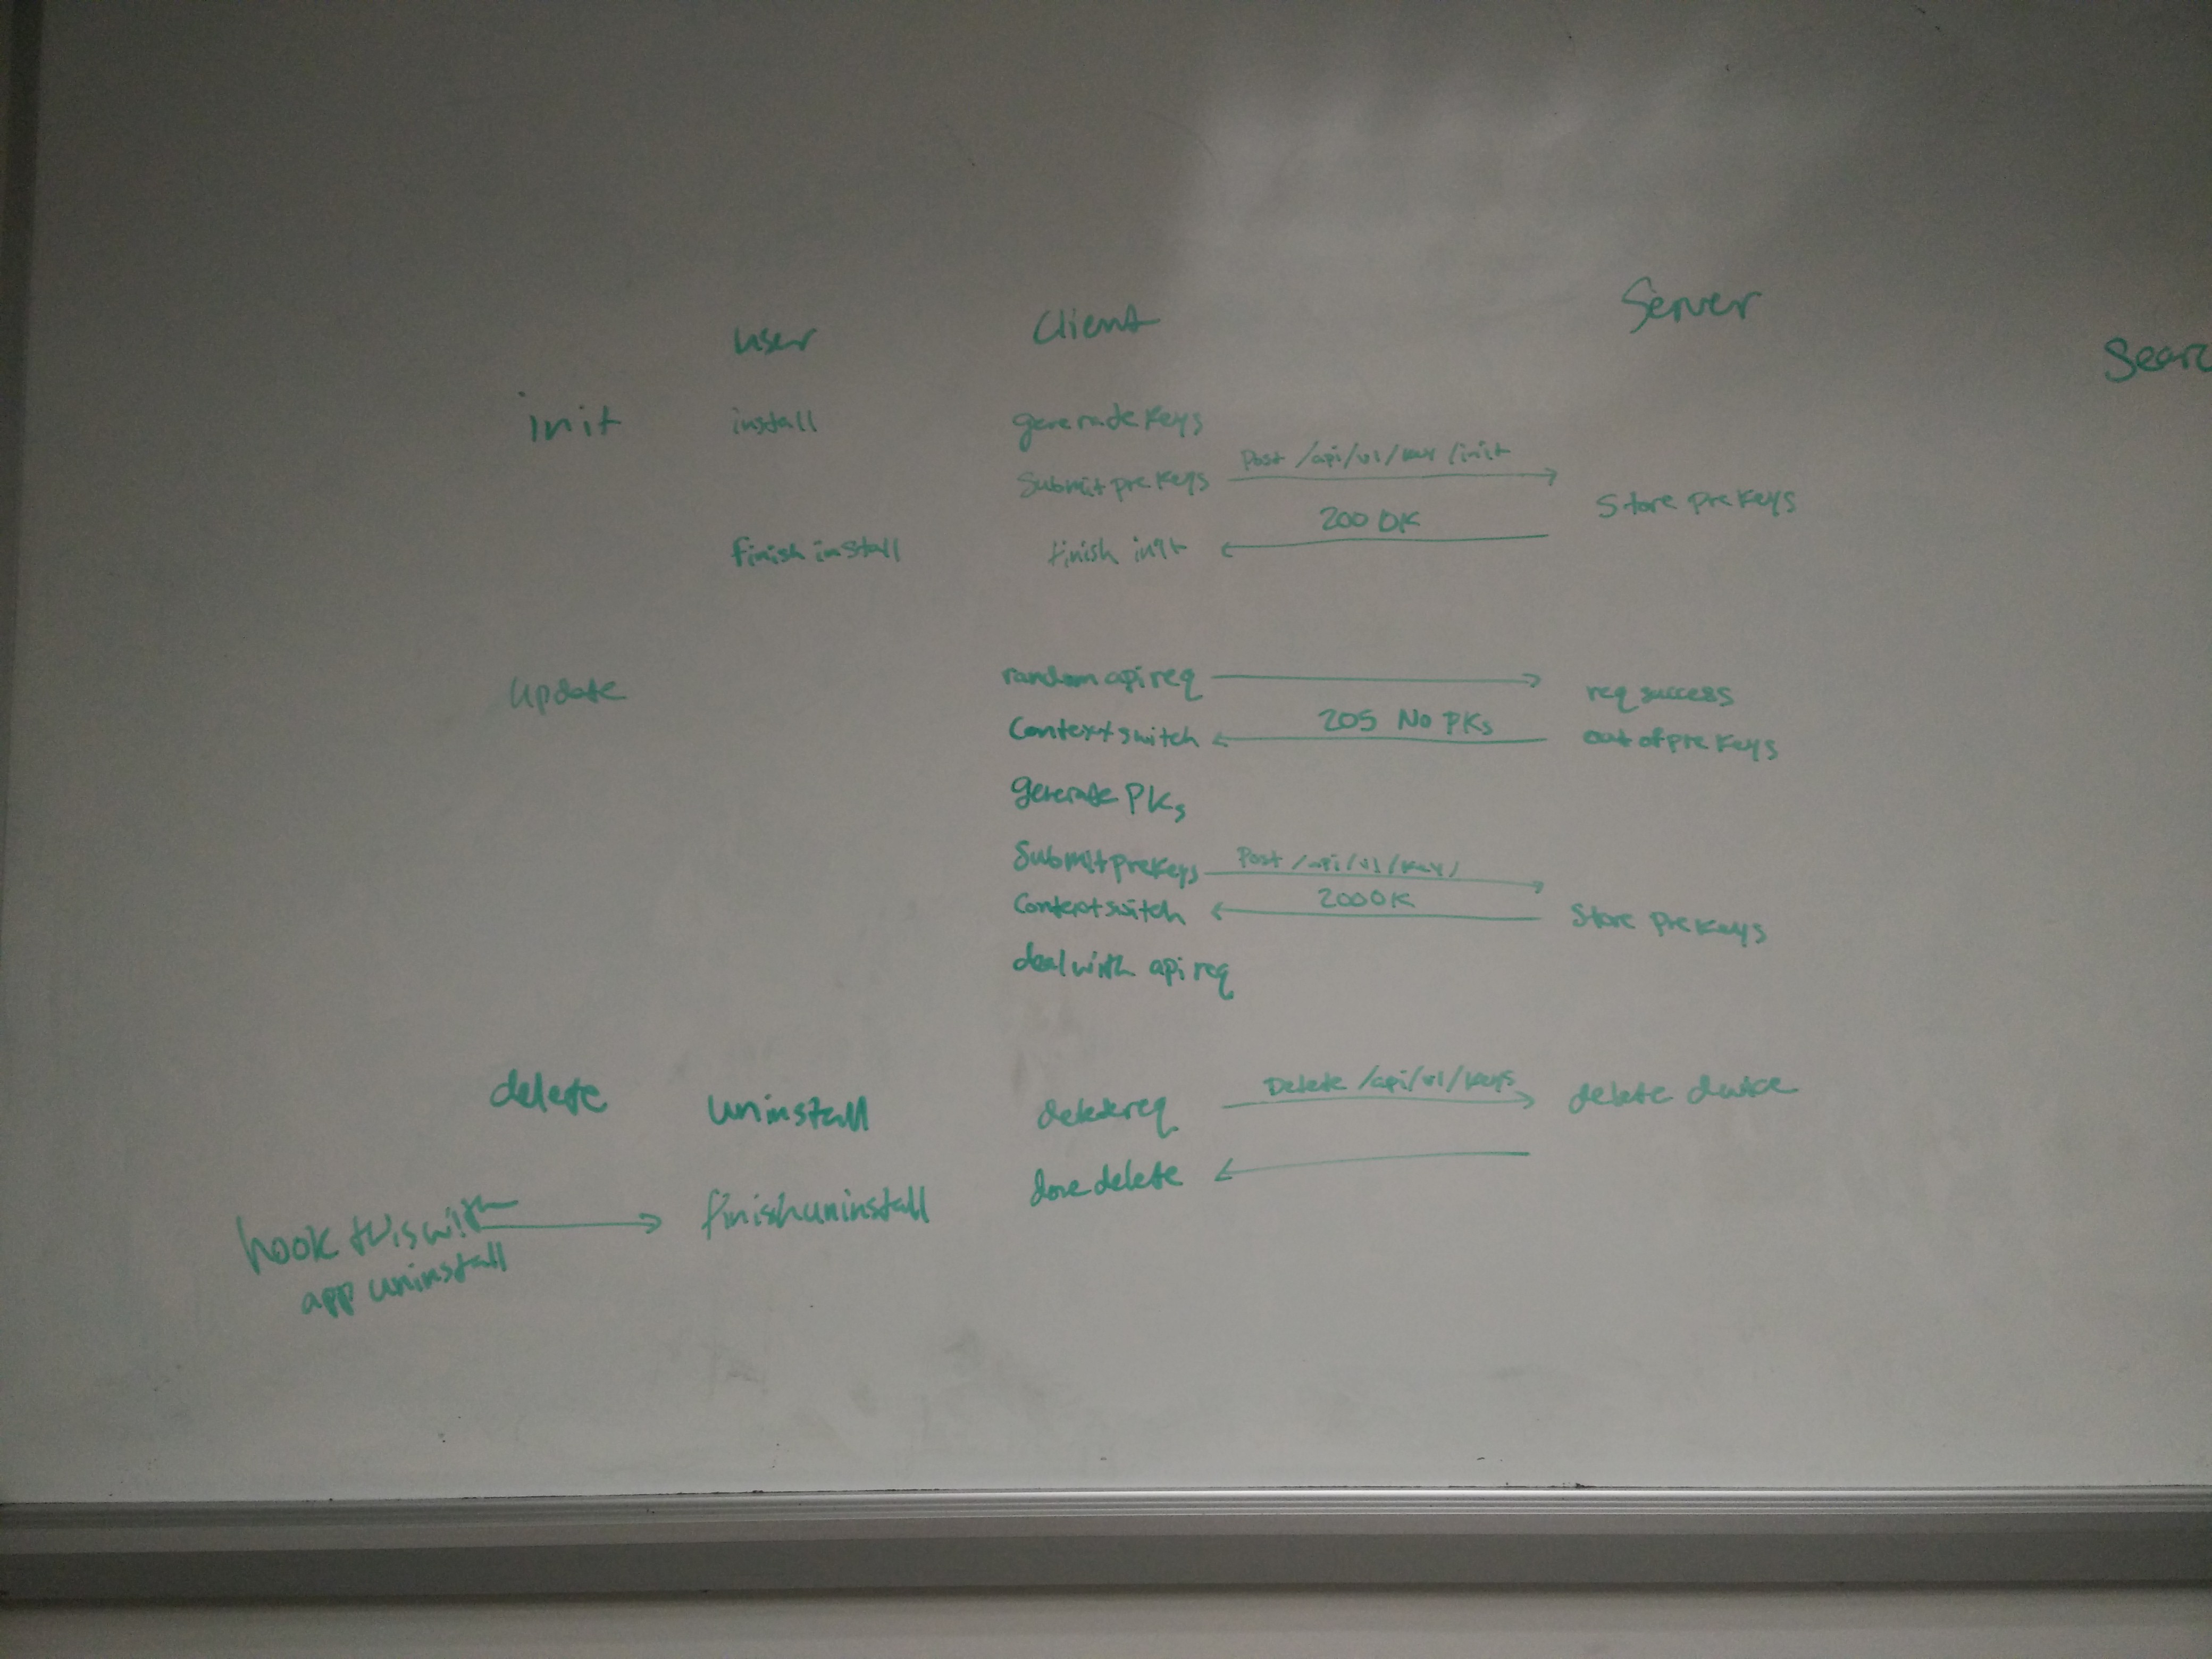 user Client Server
Searc
init install generate keys
Submit pre keys Post /api/v1/key/init
Store pre keys
200 OK
finish install finish init
update random api req req success
Context switch 205 No PKs out of pre keys
generate PKs
Submit prekeys Post /api/v1/key/
Context switch 200 OK Store pre keys
deal with api req
delete uninstall delete req Delete /api/v1/keys delete device
hook this with finish uninstall done delete
app uninstall